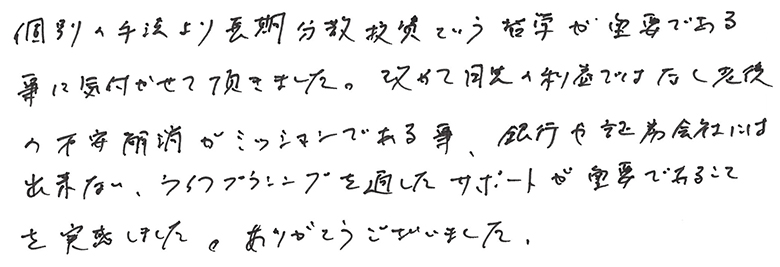 個別の手法より長期分散投資という哲学が重要である
事に気付かせて頂きました。改めて目先の利益ではなく老後
の不安解消がミッションである事、銀行や証券会社には
出来ない、ライフプランニングを通したサポートが重要であること
を実感しました。ありがとうございました。